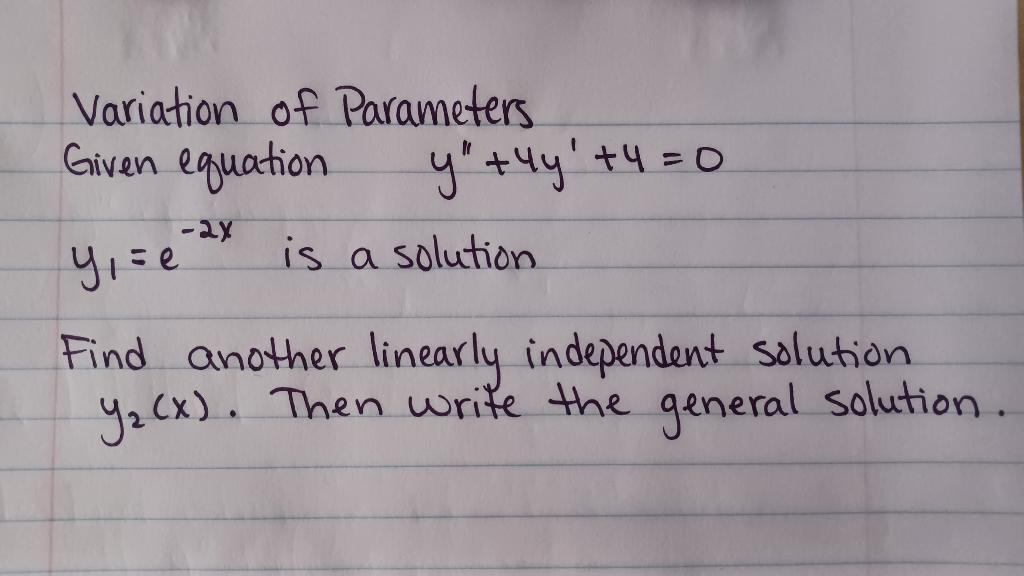 Variation of Parameters
Given equation y" + 4y' + 4 = 0
y₁ = e⁻²ˣ is a solution
Find another linearly independent solution
y₂(x). Then write the general solution.